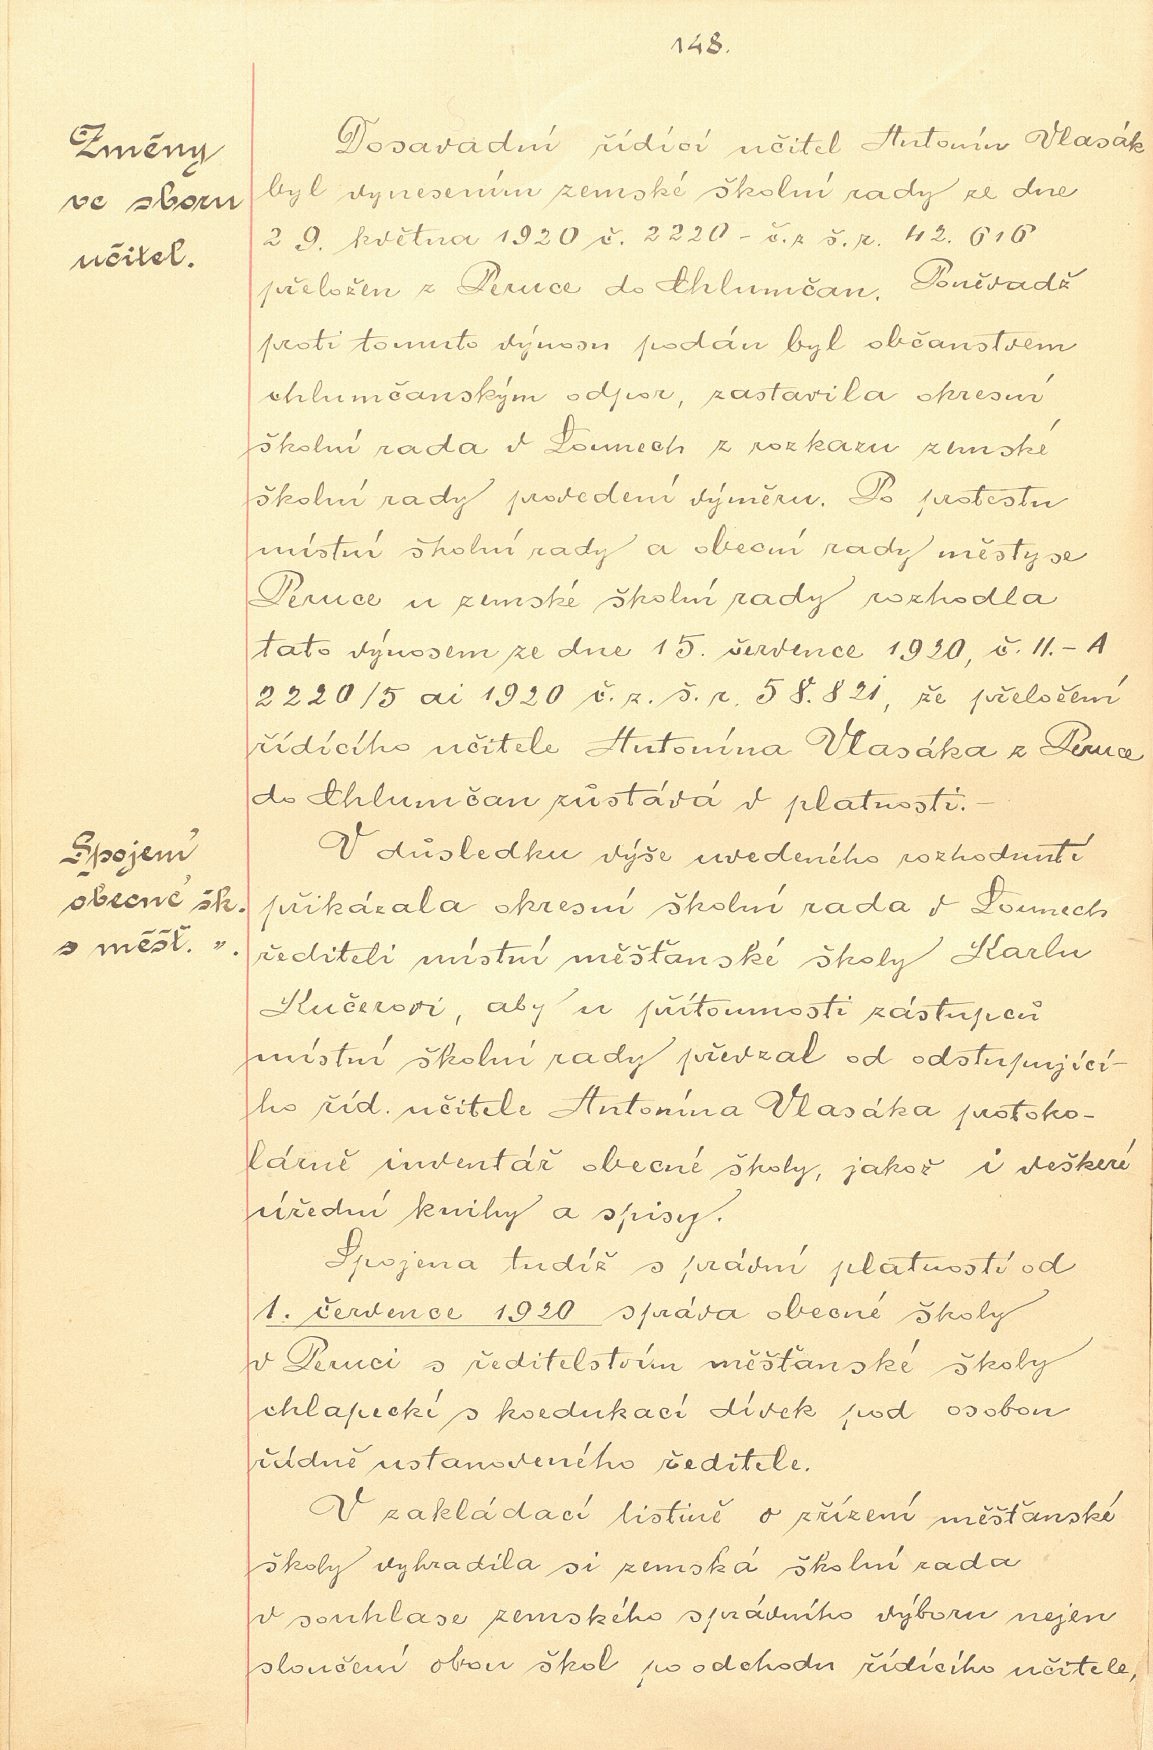 148.
Změny
ve sboru
učitel.
Dosavadní řídící učitel Antonín Vlasák
byl vynesením zemské školní rady ze dne
29. května 1920 č. 2220 - č. z š. r. 42. 616
přeložen z Peruce do Chlumčan. Poněvadž
proti tomuto výnosu podán byl občanstvem
chlumčanským odpor, zastavila okresní
školní rada v Lounech z rozkazu zemské
školní rady provedení výměru. Po protestu
místní školní rady a obecní rady městyse
Peruce u zemské školní rady rozhodla
tato výnosem ze dne 15. července 1920, č. II. - A
2220/5 ai 1920 č. z. š. r. 58. 821, že přeložení
řídícího učitele Antonína Vlasáka z Peruce
do Chlumčan zůstává v platnosti. -
Spojení
obecné šk.
s měšť. ".
V důsledku výše uvedeného rozhodnutí
přikázala okresní školní rada v Lounech
řediteli místní měšťanské školy Karlu
Kučerovi, aby u přítomnosti zástupců
místní školní rady převzal od odstupující-
ho říd. učitele Antonína Vlasáka protoko-
lárně inventář obecné školy, jakož i veškeré
úřední knihy a spisy.
Spojena tudíž s právní platností od
1. července 1920 správa obecné školy
v Peruci s ředitelstvím měšťanské školy
chlapecké s koedukací dívek pod osobou
řádně ustanoveného ředitele.
V zakládací listině o zřízení měšťanské
školy vyhradila si zemská školní rada
v souhlase zemského správního výboru nejen
sloučení obou škol po odchodu řídícího učitele,